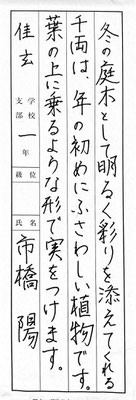 冬の庭木として明るく彩りを添えてくれる
千両は、年の初めにふさわしい植物です。
葉の上に乗るような形で実をつけます。
佳玄
学校
支部
一年
級位
氏名
市橋陽